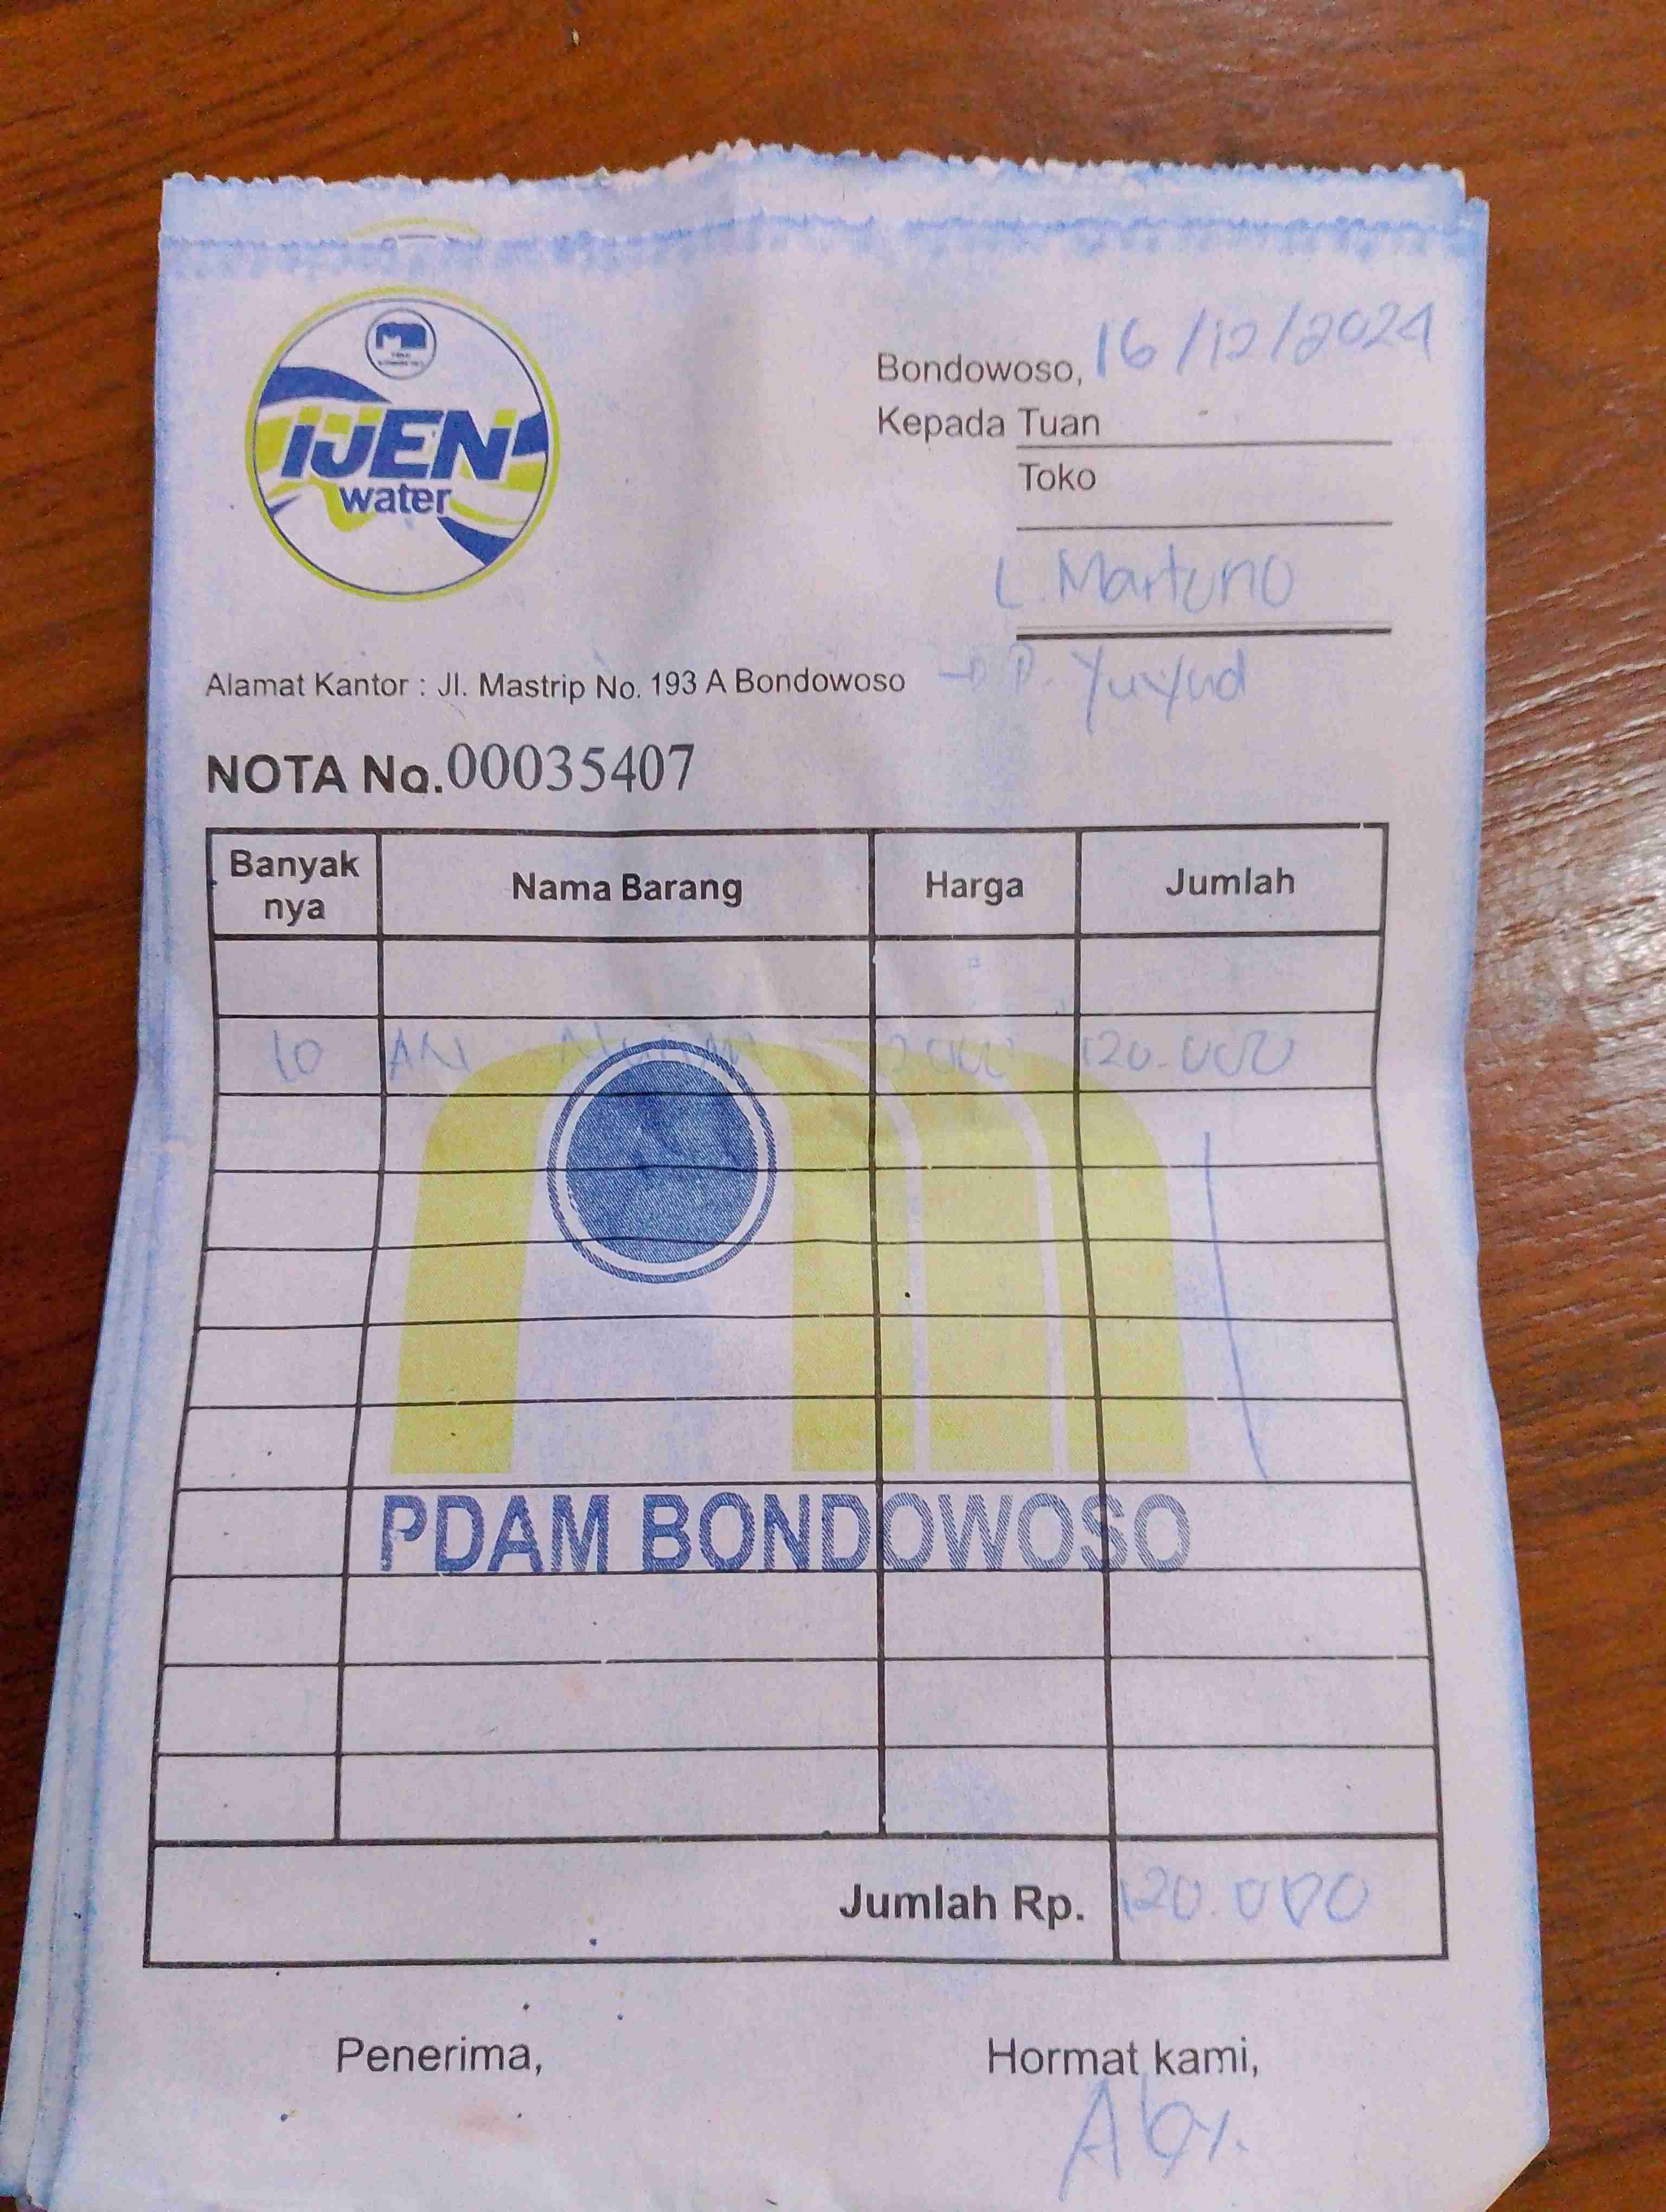 IJEN
water
Bondowoso, 16/12/2024
Kepada Tuan
Toko
L. Martono
P. Yuyud
Alamat Kantor : Jl. Mastrip No. 193 A Bondowoso
NOTA No. 00035407
Banyak nya Nama Barang Harga Jumlah
10 120.000
PDAM BONDOWOSO
Jumlah Rp. 120.000
Penerima, Hormat kami,